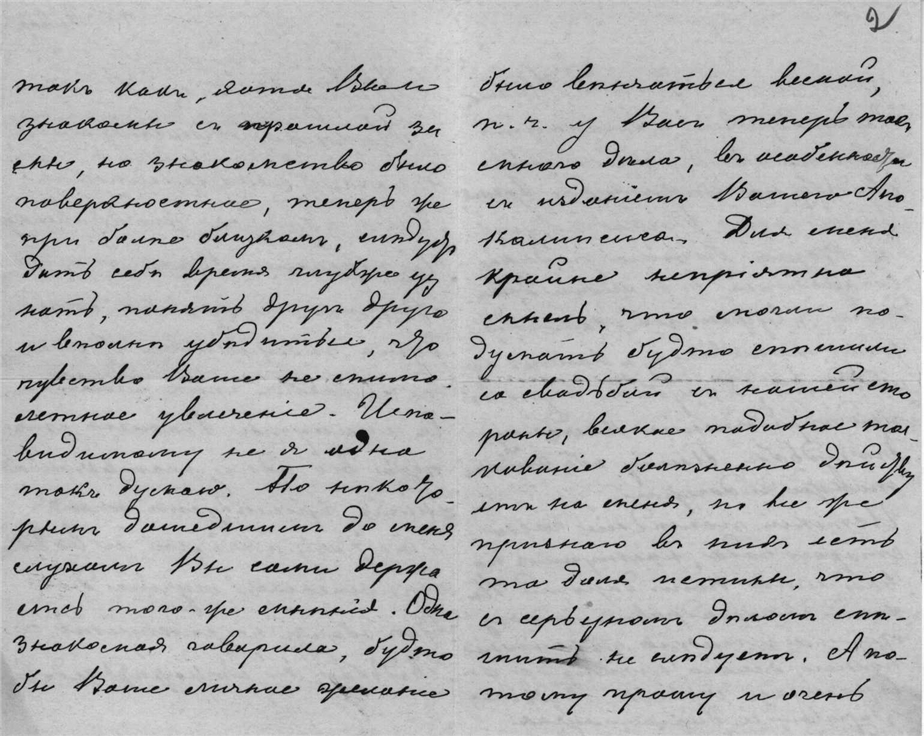 2
такъ какъ, хотя Вы и
знакомы съ прошлой зи
мы, но знакомство было
поверхностное, теперь же
при более близкомъ, слѣдуетъ
дать себѣ время глубже уз
нать, понять другъ друга
и вполнѣ убѣдиться, что
чувство Ваше не мимо-
летное увлеченіе. И спо-
видимому не я одна
такъ думаю. По нѣкото-
рымъ дошедшимъ до меня
слухамъ Вы сами держа
лись того-же мнѣнія. Одна
знакомая говорила, будто
бы Ваше личное желаніе
было вѣнчаться весной,
п. ч. у Васъ теперь такъ
много дѣла, въ особенности
съ изданіемъ Вашего Апо-
калипсиса. Для меня
крайне непріятна
мысль, что могли по-
думать будто спѣшили
со свадьбой съ нашей сто
роны, всякое подобное тол-
кованіе болѣзненно дѣйству
етъ на меня, но все же
признаю въ нихъ есть
та доля истины, что
съ серьезномъ дѣломъ спѣ-
шить не слѣдуетъ. А по-
тому прошу и очень